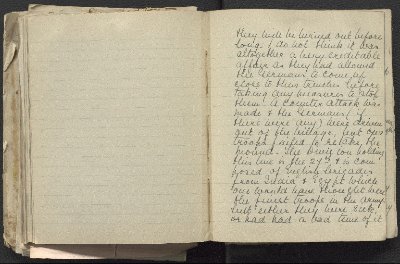 they will be turned out before
long. I do not think it was
altogether a very creditable
affair as they had allowed
the Germans to come up
close to their trenches before
taking any measures to stop
them. A counter attack was
made & the Germans (if
there were any) were driven
out of the village, but our
troops failed to retake the
mound. The Divn now holding
this line is the 27th & is com
posed of English Brigades
from India & Egypt which
one would have thought were
the finest troops in the army
but either they were sick
or had had a bad time of it